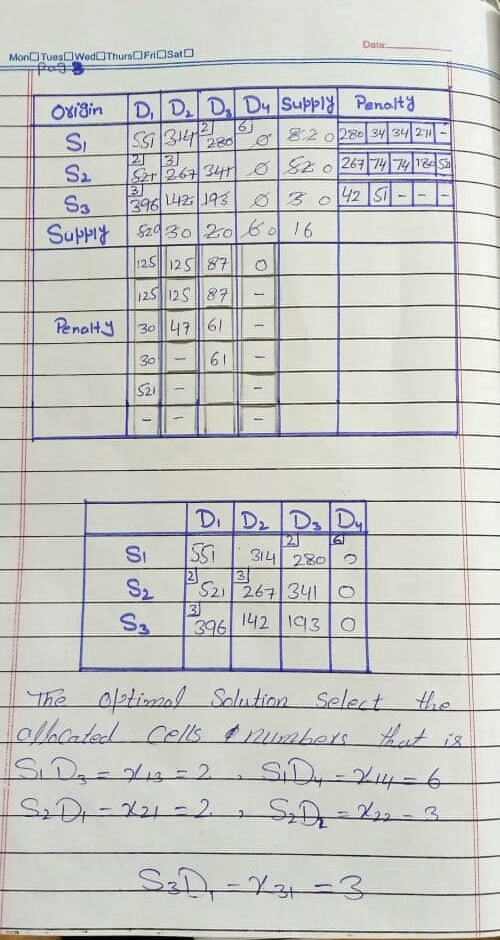 Mon Tues Wed Thurs Fri Sat Date:
Page 3
Origin D1 D2 D3 D4 Supply Penalty
S1 551 314 2 280 6 0 8 2 0 280 34 34 271 -
S2 2 521 3 267 341 0 5 2 0 267 74 74 180 521
S3 3 396 142 193 0 3 0 42 51 - - -
Supply 520 30 20 60 16
125 125 87 0
125 125 87 -
Penalty 30 47 61 -
30 - 61 -
521 - -
- - -
D1 D2 D3 D4
S1 551 314 2 280 6 0
S2 2 521 3 267 341 0
S3 3 396 142 193 0
The optimal Solution Select the
allocated cells numbers that is
S1D3 = x13 = 2 , S1D4 = x14 = 6
S2D1 = x21 = 2 , S2D2 = x22 = 3
S3D1 = x31 = 3